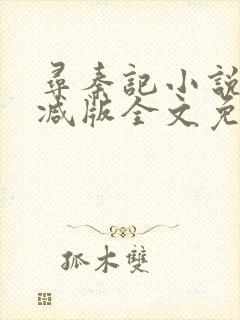 尋秦記小説
减版全文免
孤木雙